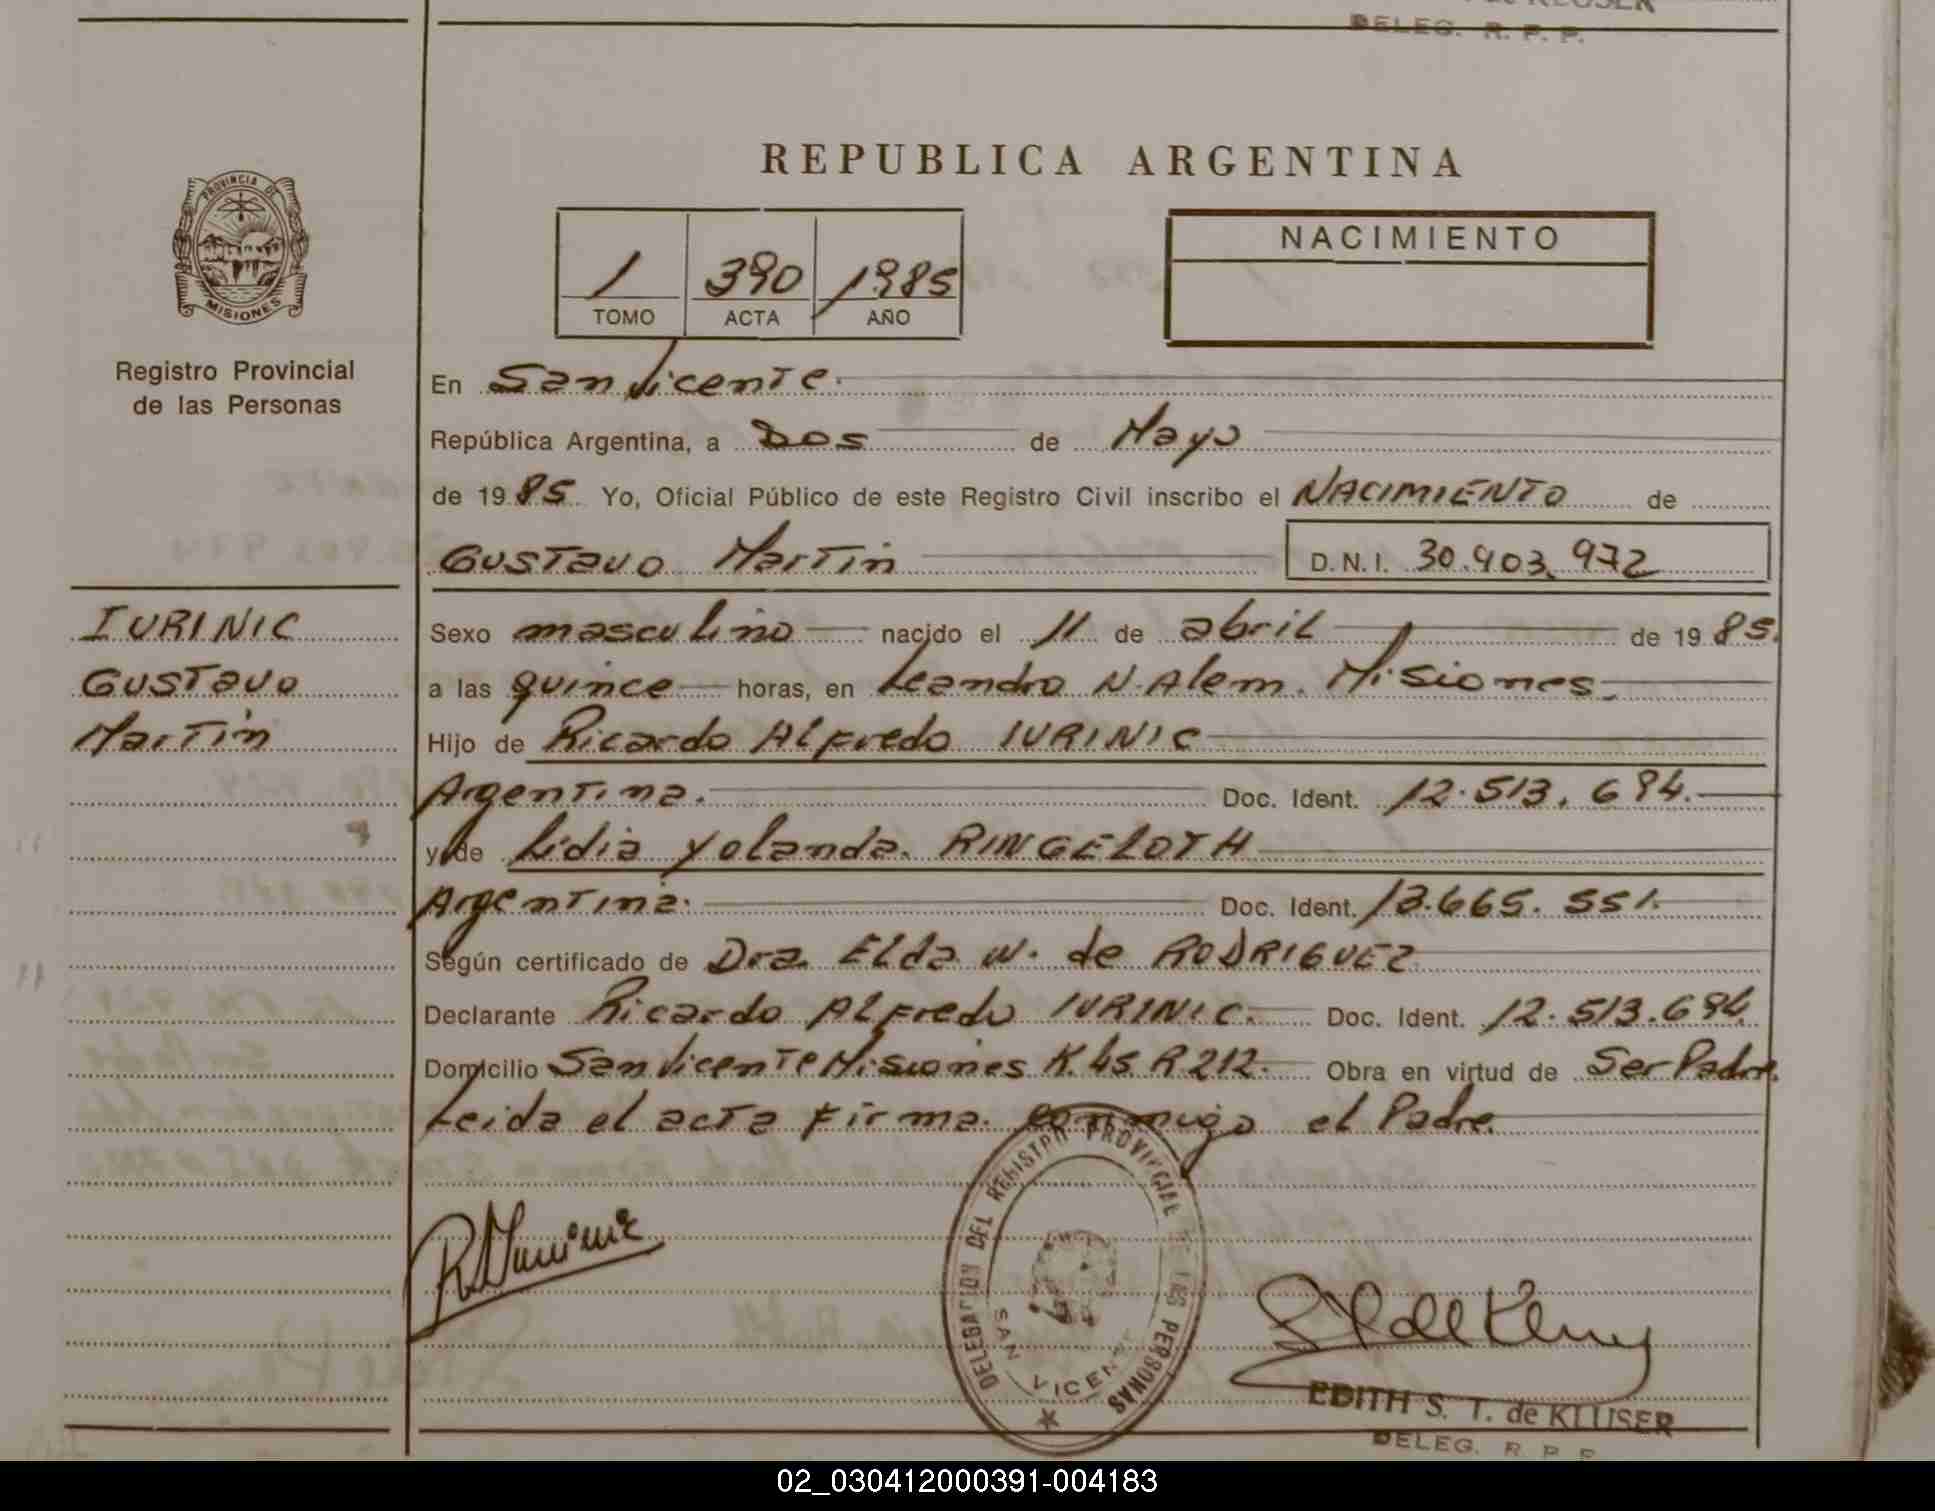 DELEG. R. P. P.
REPUBLICA ARGENTINA
PROVINCIA DE
MISIONES
Registro Provincial
de las Personas
1 390 1985
TOMO ACTA AÑO
NACIMIENTO
En San Vicente.
República Argentina, a Dos de Mayo
de 19 85 Yo, Oficial Público de este Registro Civil inscribo el NACIMIENTO de
Gustavo Martin D.N.I. 30.903.972
IURINIC
Gustavo
Martin
Sexo masculino nacido el 11 de abril de 19 85.
a las quince horas, en Leandro N. Alem. Misiones.
Hijo de Ricardo Alfredo IURINIC
Argentina. Doc. Ident. 12.513.694.
y de Lidia Yolanda. RINGELOTH
Argentina. Doc. Ident. 13.665.551.
Según certificado de Dra. Elda W. de RODRIGUEZ
Declarante Ricardo Alfredo IURINIC. Doc. Ident. 12.513.694
Domicilio San Vicente Misiones K.45 R 212. Obra en virtud de Ser Padre.
Leida el acta firma. conmigo el Padre.
DELEGACION DEL REGISTRO PROVINCIAL DE LAS PERSONAS
SAN VICENTE
EDITH S. T. de KLUSER
DELEG. R. P. P.
02_030412000391-004183